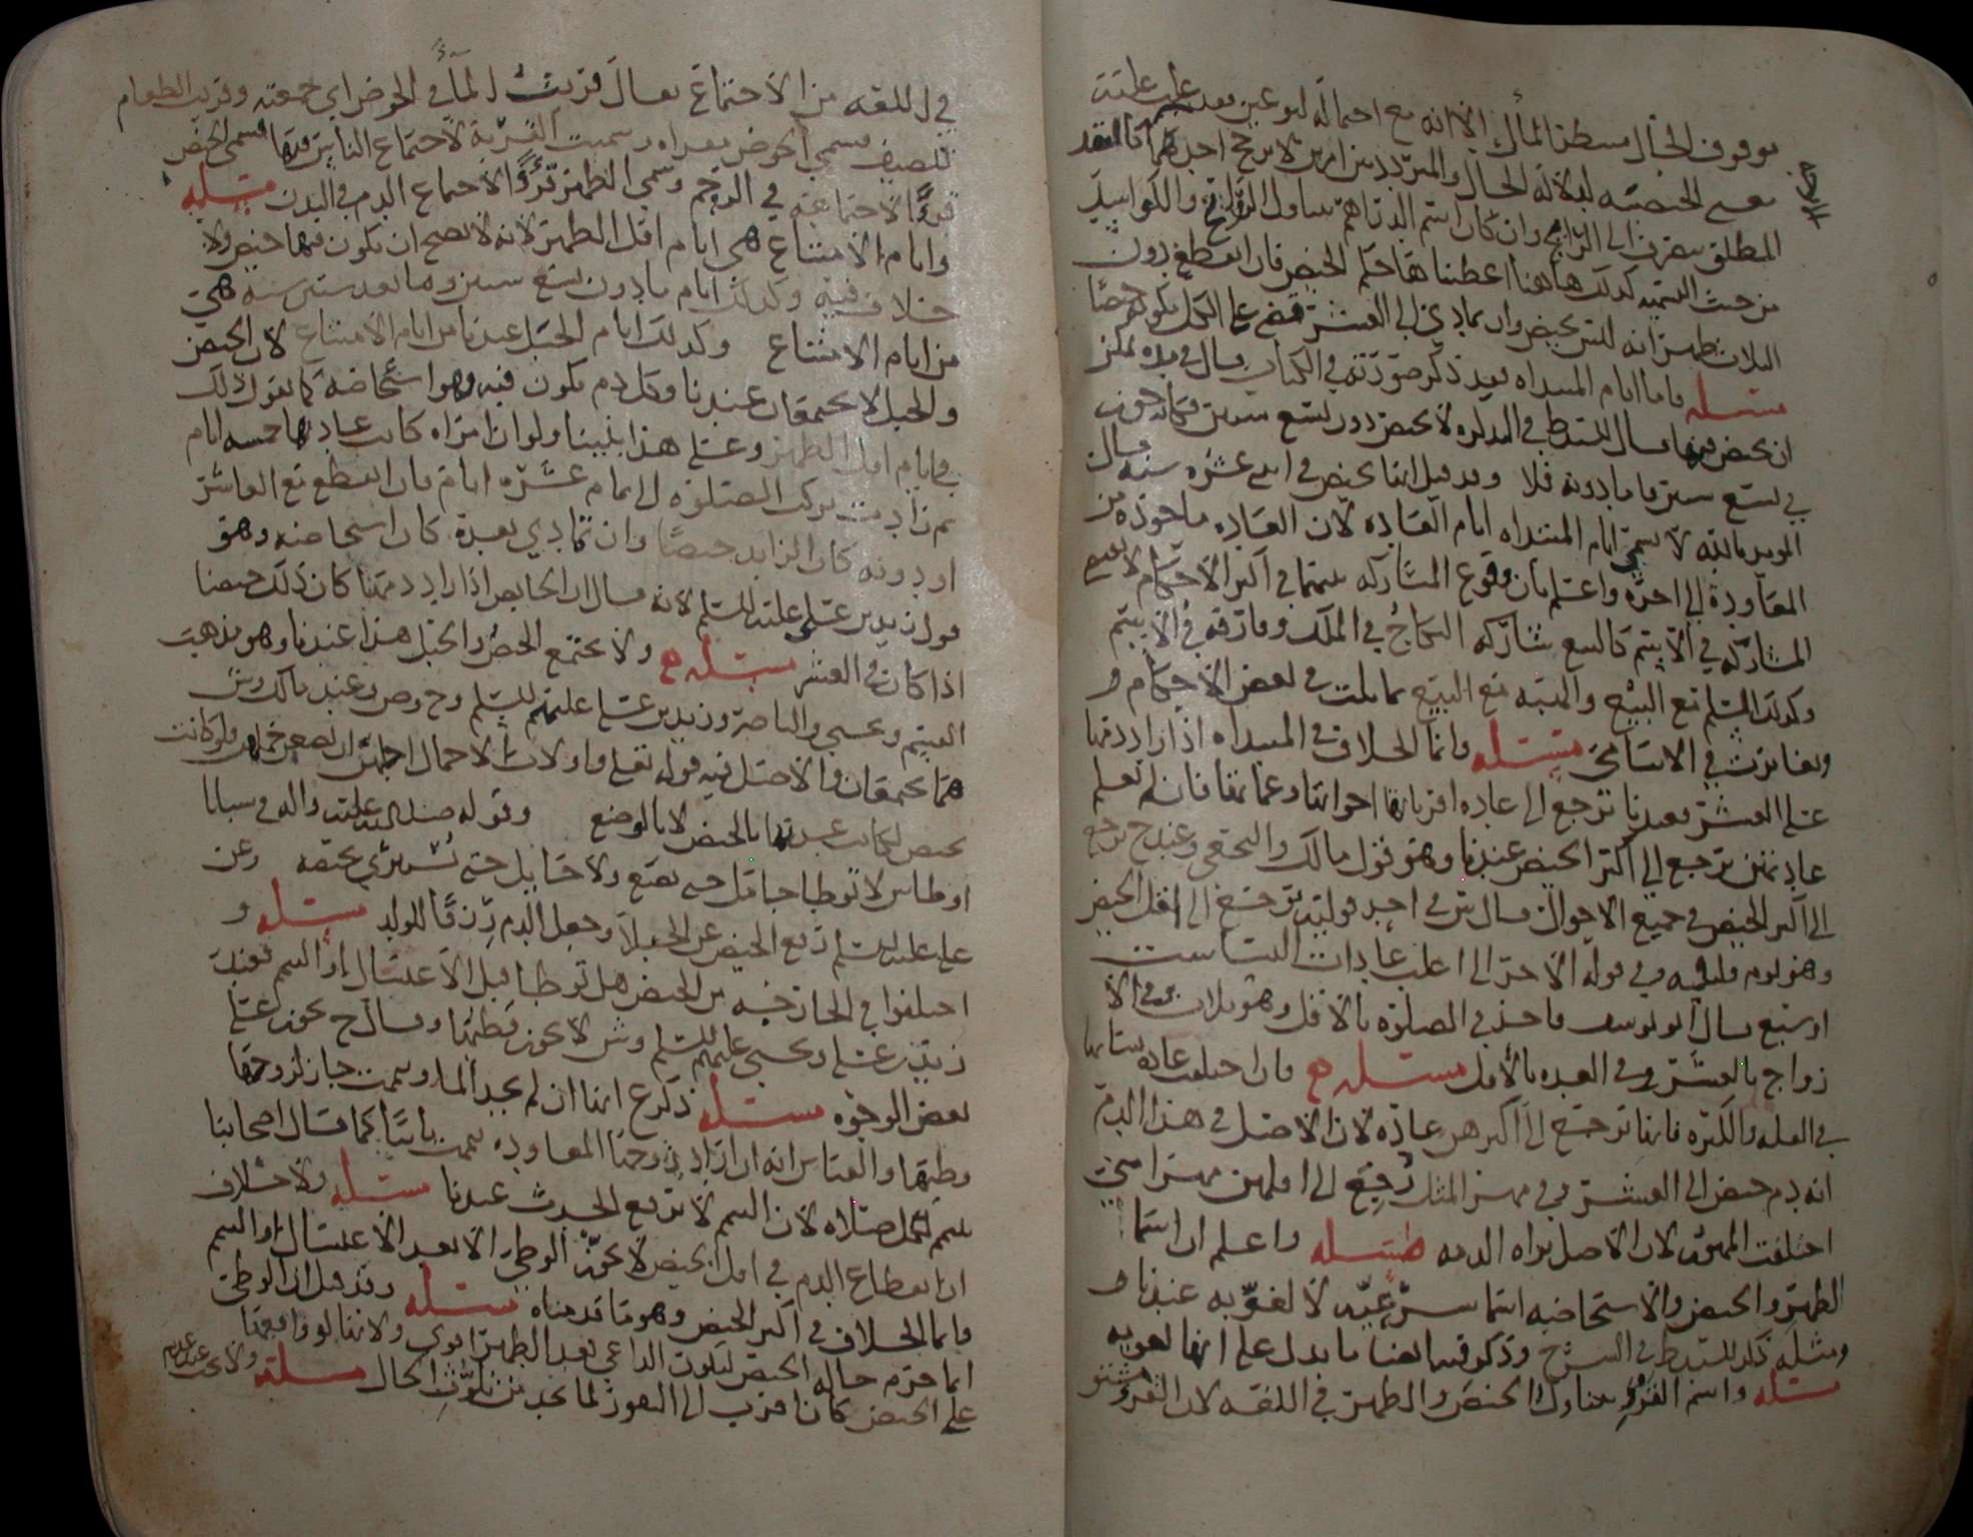 موقوف الحال سطر المأل الا انه مع احتماله لنوعين
الحيضه لدلالة الحال والمتردد بين امرين لا يرجح احدهما
المطلق سصرف الى الرايج وان كان اسم الدراهم ساول الرايج والكواسد
من حيث التسميه كذلك هاهنا اعطينا حكم الحيض فان انقطع دون
الثلاث طهر انه ليس بحيض وان تمادى الى العشر قضي على الكل بكونه حيضا
مسئله واما ايام المبتداه بعد ذكر في الكتاب
ان تحيض فيها قال السيد ط في التذكره لا تحيض دون تسع سنين
في تسع سنين فاما دونه فلا وقد قيل انها تحيض في اثنى عشره سنه قال
المويد بالله لا تسمى ايام المبتداه ايام العاده لان العاده ماخوذه من
المعاودة الى اخره واعلم بان وقوع المشاركه بينهما في اكثر الاحكام لا
المشاركه في الاسم كالبيع شاركه النكاح في الملك وفارقه في الاسم
وكذلك السلم مع البيع والهبه مع البيع تماثلت في بعض الاحكام و
وتغايرت في الاسامي مسئله وانما الخلاف في المبتداه اذا زاد دمها
على العشر فعندنا ترجع الى عاده اقربائها اخواتها وعماتها فان لم تعلم
عادتهن ترجع الى اكثر الحيض عندنا وهو قول مالك والنخعي وعند ح ترجع
الى اكثر الحيض في جميع الاحوال وقال ش في احد قوليه ترجع الى اقل الحيض
وهو يوم وليله وفي قوله الاخر الى اغلب عادات النساء ست
او سبع قال ابو يوسف تاخذ في الصلوه بالاقل وهو ثلاث وفي الا
زواج بالعشر وفي العده بالاقل مسئله ح فان اختلفت عاده نسائها
في القله والكثره فانها ترجع الى اكثرهن عاده لان الاصل في هذا الدم
انه دم حيض الى العشر وفي مهر المثل رجع الى اقلهن مهرا متى
اختلفت المهور لان الاصل براه الذمه مسئله واعلم ان اسما
الطهر والحيض والاستحاضه اسما شرعيه لا لغويه عندنا و
ومثله ذكر السيد ط في الشرح وذكر فيه ايضا ما يدل على انها لغويه
مسئله واسم القرؤ يتناول الحيض والطهر في اللغه لان القرؤ
في اللغه من الاجتماع يقال قريت الماء في الحوض اي جمعته وقريت الطعام
للضيف فسمي الحوض مقراه وسميت القرية لاجتماع الناس فيها فسمي الحيض
قرؤا لاجتماعه في الرحم وسمي الطهر قرؤا لاجتماع الدم في البدن مسئله
وايام الامتناع هي ايام اقل الطهر لانه لا يصح ان يكون فيها حيض ولا
خلاف فيه وكذلك ايام ما دون تسع سنين وما بعد ستين سنه هي
من ايام الامتناع وكذلك ايام الحبل عندنا من ايام الامتناع لان الحيض
والحبل لا يجتمعان عندنا وكل دم يكون فيه فهو استحاضه كما نقول ذلك
في ايام اقل الطهر وعلى هذا بنينا ولو ان امراه كانت عادتها خمسه ايام
ثم زادت تركت الصلوه الى تمام عشره ايام فان انقطع مع العاشر
او دونه كان الزايد حيضا وان تمادى بعده كان استحاضه وهو
قول زيد بن علي عليه السلم لانه قال ان الحايض اذا زاد دمها كان ذلك حيضا
اذا كان في العشر مسئله ح ولا يجتمع الحيض والحبل هذا عندنا وهو مذهب
القسم ويحيى والناصر وزيد بن علي عليهم السلم وح وص وعند مالك وش
هما يجتمعان والاصل فيه قوله تعلى واولات الاحمال اجلهن ان يضعن حملهن ولو كانت
تحيض لكانت عدتها بالحيض لا بالوضع وقوله صلى الله عليه واله في سبايا
اوطاس لا توطا حامل حتى تضع ولا حايل حتى تستبري بحيضه وعن
علي عليه السلم رفع الحيض عن الحبلى وجعل الدم رزقا للولد مسئله و
اختلفوا في الخارجه من الحيض هل توطا قبل الاغتسال او التيمم فعند
زيد بن علي ويحيى عليهم السلم وش لا يجوز وطئها وقال ح يجوز على
بعض الوجوه مسئله ذكر ع انها ان لم تجد الماء وتيممت جاز لزوجها
وطيها والقياس انه ان اراد زوجها المعاوده تيممت ثانيا كما قال اصحابنا
تيمم لكل صلاه لان التيمم لا يرفع الحدث عندنا مسئله ولا خلاف
ان انقطاع الدم في اقل الحيض لا يجوز الوطئ الا بعد الاغتسال او التيمم
وانما الخلاف في اكثر الحيض وهو ما قدمناه مسئله وقد قيل ان الوطئ
انما حرم حاله الحيض ليكون الداعي بعد الطهر اقوى ولانها لو واقعها
على الحيض كان اقرب الى النفور لما يجد من تلوث الحال مسئله ولا يجب